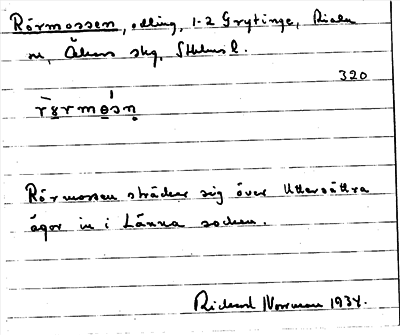 Rörmossen, odling, 1-2 Grytinge, Riala
sn, Åkers skg, Sthlms l.
320
Rörmossen sträcker sig över Uttersättra
ägor in i Länna socken.
Rickard Norrman 1934.